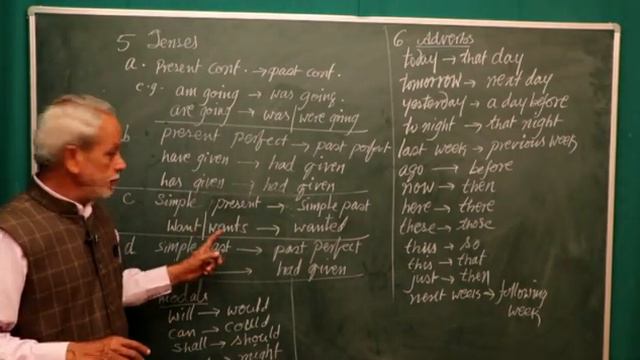 5 Tenses
a. Present Cont. → past conf.
e.g. am going → was going
are going → was | were going
b present perfect → past perfect
have given → had given
has given → had given
c Simple present → Simple past
Want | wants → wanted
d simple → past perfect
→ had given
modals
will → would
can → could
shall → should
→ might
6 Adverbs
today → that day
tomorrow → next day
yesterday → a day before
to night → that night
last week → previous week
ago → before
now → then
here → there
these → those
thus → so
this → that
just → then
next week → following
week